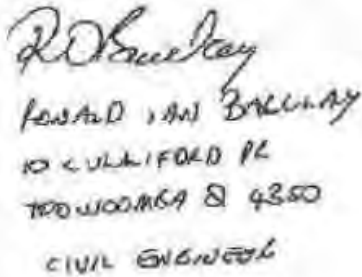 RONALD IAN BARCLAY
10 CULLIFORD PL
TOOWOOMBA Q 4350
CIVIL ENGINEER